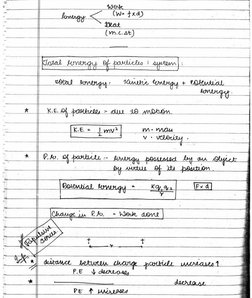 Work
(W = f x d)
Energy
Heat
(m.c.Δt)
Total Energy of particles : system
Total Energy. Kinetic Energy + Potential
Energy.
* K.E. of particles - due to motion.
K.E = 1/2 mv² m - mass
v - velocity.
* P.E. of particle - Energy possessed by an object
by virtue of its position.
Potential Energy = Kq₁q₂/r F x d
Change in P.E. = Work done
Repulsive
forces
r
* distance between charge particle increases ↑
P.E ↓ decreases
* decrease
PE ↑ increases